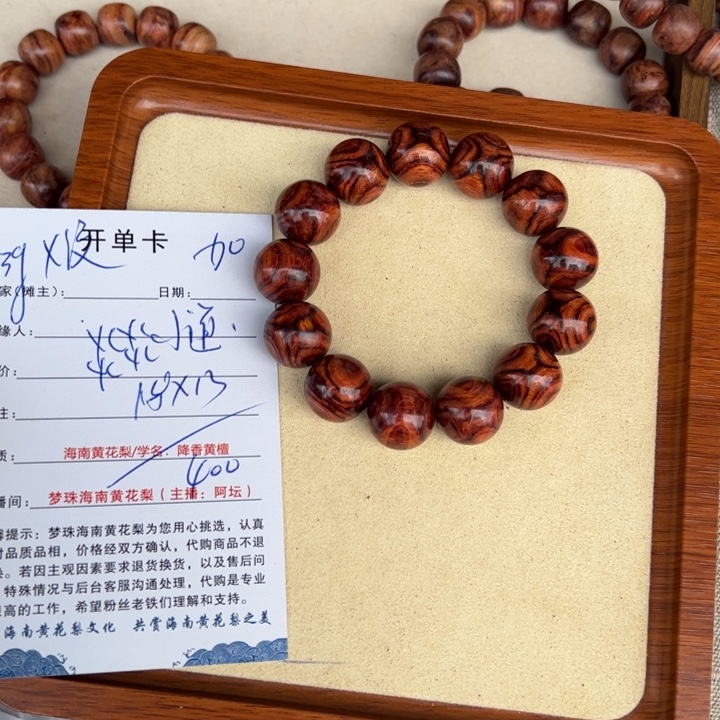 开单卡
家(摊主):
日期:
缘人:
价:
18×13
主:
质: 海南黄花梨/学名:降香黄檀
400
播间: 梦珠海南黄花梨(主播:阿坛)
提示:梦珠海南黄花梨为您用心挑选,认真
对品质品相,价格经双方确认,代购商品不退
。若因主观因素要求退货换货,以及售后问
特殊情况与后台客服沟通处理,代购是专业
很高的工作,希望粉丝老铁们理解和支持。
海南黄花梨文化 共赏海南黄花梨之美